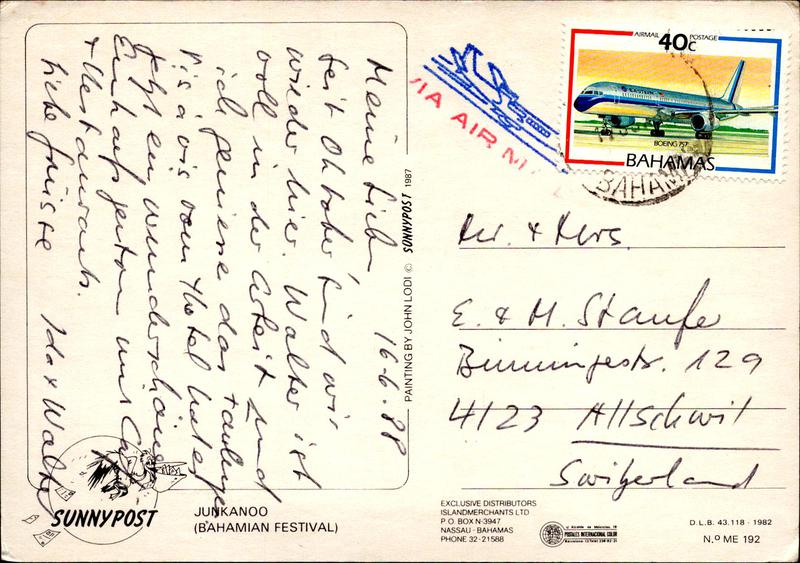 16-6. 88
Meine Lieben
seit Oktober sind wir
wieder hier. Walter ist
voll in der Arbeit und
ich geniesse das
vis à vis vom Hotel hat es
jetzt ein wunderschönes
Einkaufszentrum mit
+ Restaurants.
Liebe Grüsse Ida + Walter
PAINTING BY JOHN LODI © SUNNYPOST 1987
SUNNYPOST
JUNKANOO
(BAHAMIAN FESTIVAL)
VIA AIR M
AIRMAIL POSTAGE
40c
EASTERN
BOEING 757
BAHAMAS
BAHAM
Mr. + Mrs.
E. + M. Staufer
Binningerstr. 129
4123 Allschwil
Switzerland
EXCLUSIVE DISTRIBUTORS
ISLANDMERCHANTS LTD
P.O. BOX N-3947
NASSAU - BAHAMAS
PHONE 32-21588
POSTALES INTERNACIONAL COLOR
D.L.B. 43.118 - 1982
N.º ME 192